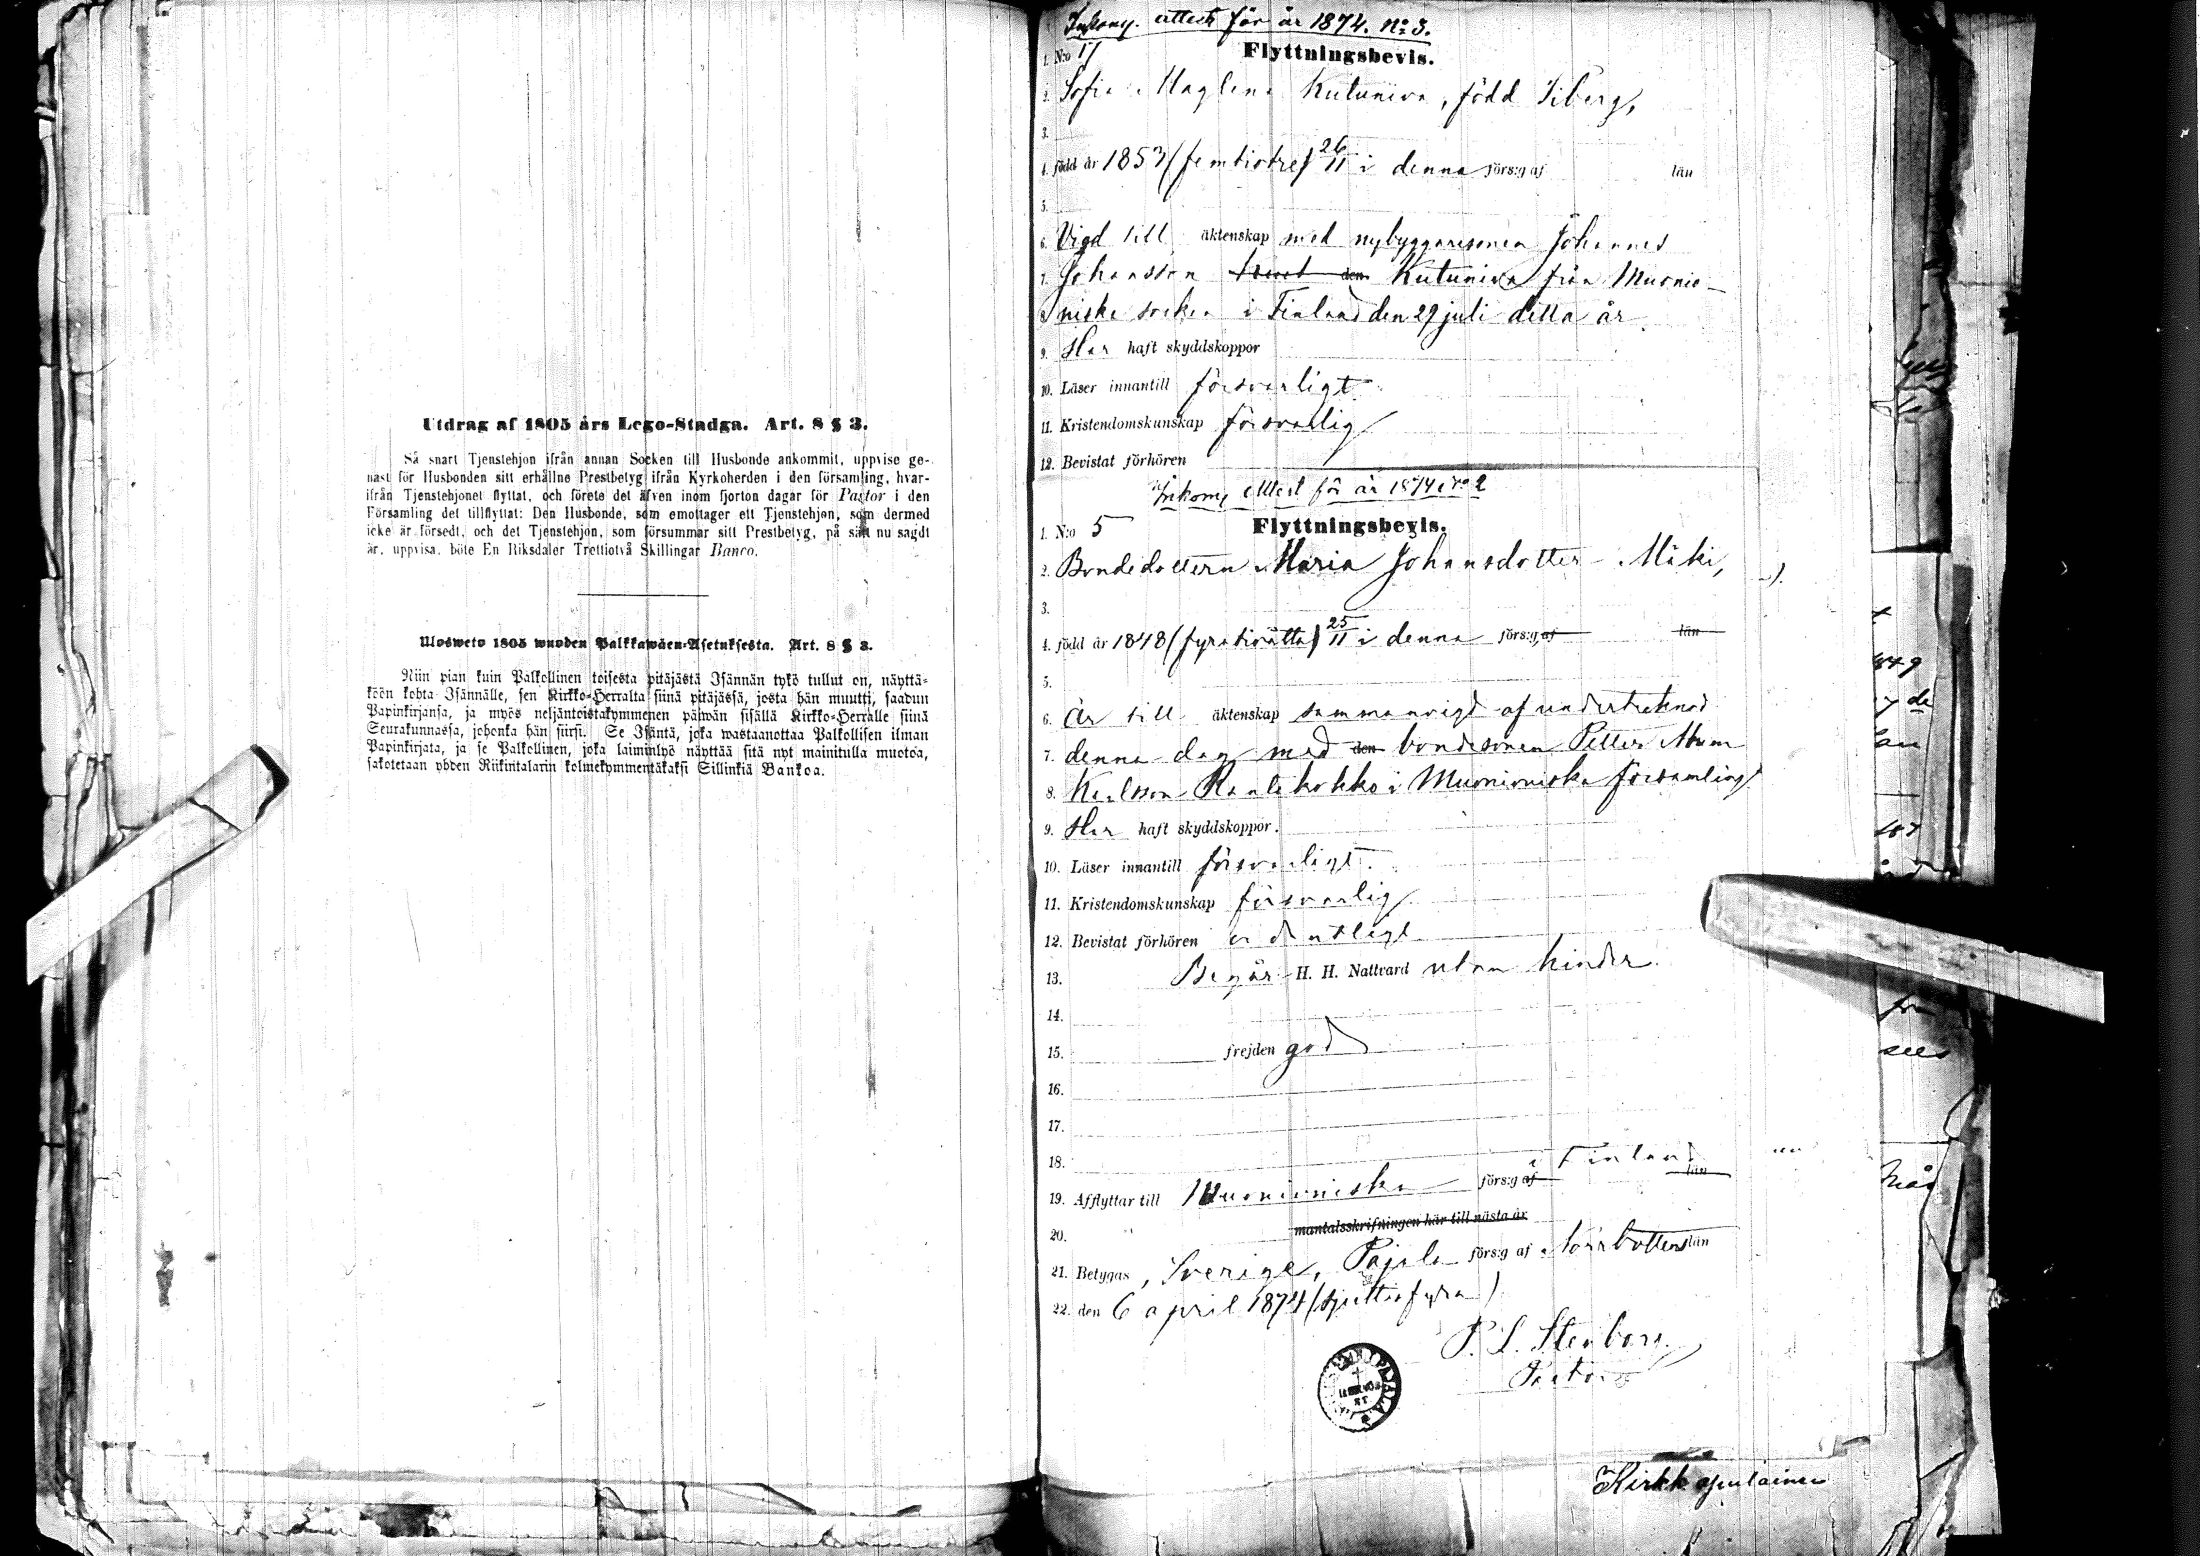 Utdrag af 1805 års Lego-Stadga. Art. 8 § 3.
Så snart Tjenstehjon ifrån annan Socken till Husbonde ankommit, uppvise ge-
nast för Husbonden sitt erhållne Prestbetyg ifrån Kyrkoherden i den församling, hvar-
ifrån Tjenstehjonet flyttat, och förete det äfven inom fjorton dagar för Pastor i den
Församling det tillflyttat: Den Husbonde, som emottager ett Tjenstehjon, som dermed
icke är försedt, och det Tjenstehjon, som försummar sitt Prestbetyg, på sätt nu sagdt
är, uppvisa, böte En Riksdaler Trettiotvå Skillingar Banco.
Ulosweto 1805 wuoden Palkkawäen-Asetuksesta. Art. 8 § 3.
Niin pian kuin Palkollinen toisesta pitäjästä Isännän tykö tullut on, näyttä-
köön kohta Isännälle, sen Kirkko-Herralta siinä pitäjässä, josta hän muutti, saadun
Papinkirjansa, ja myös neljäntoistakymmenen päiwän sisällä Kirkko-Herralle siinä
Seurakunnassa, johonka hän siirsi. Se Isäntä, joka wastaanottaa Palkollisen ilman
Papinkirjata, ja se Palkollinen, joka laiminlyö näyttää sitä nyt mainitulla muotoa,
sakotetaan yhden Riikintalarin kolmekymmentäkaksi Sillinkiä Bankoa.
Inkomg. attest för år 1874. No 3.
1. N:o 17 Flyttningsbevis.
2. Sofia Maglena Kutuniva, född Siberg,
3.
4. född år 1853 (femtiotre) 26/11 i denna förs:g af län
5.
6. Vigd till äktenskap med nybyggaresonen Johannes
7. Johansson den Kutuniva från Muonio-
8. niska socken i Finland den 29 juli detta år.
9. Har haft skyddskoppor
10. Läser innantill försvarligt
11. Kristendomskunskap försvarlig
12. Bevistat förhören
Inkomg attest för år 1874 No 2
1. N:o 5 Flyttningsbevis.
2. Bondedottern Maria Johansdotter Mäki,
3.
4. född år 1848 (fyratioåtta) 25/11 i denna förs:g af län
5.
6. Är till äktenskap sammanvigd af undertecknad
7. denna dag med den bondesonen Petter Abram
8. Karlsson Rautikokko i Muonioniska församling
9. Har haft skyddskoppor.
10. Läser innantill försvarligt.
11. Kristendomskunskap försvarlig
12. Bevistat förhören ordentligt
13. Begår H. H. Nattvard utan hinder.
14.
15. frejden god
16.
17.
18.
19. Afflyttar till Muonioniska förs:g af i Finland län
20. mantalsskrifningen här till nästa år
21. Betygas, Sverige, Pajala förs:g af Norrbottens län
22. den 6 april 1874 (sjuttiofyra)
P. L. Stenborg
Pastor
PAJALA
Kirkkopulainen